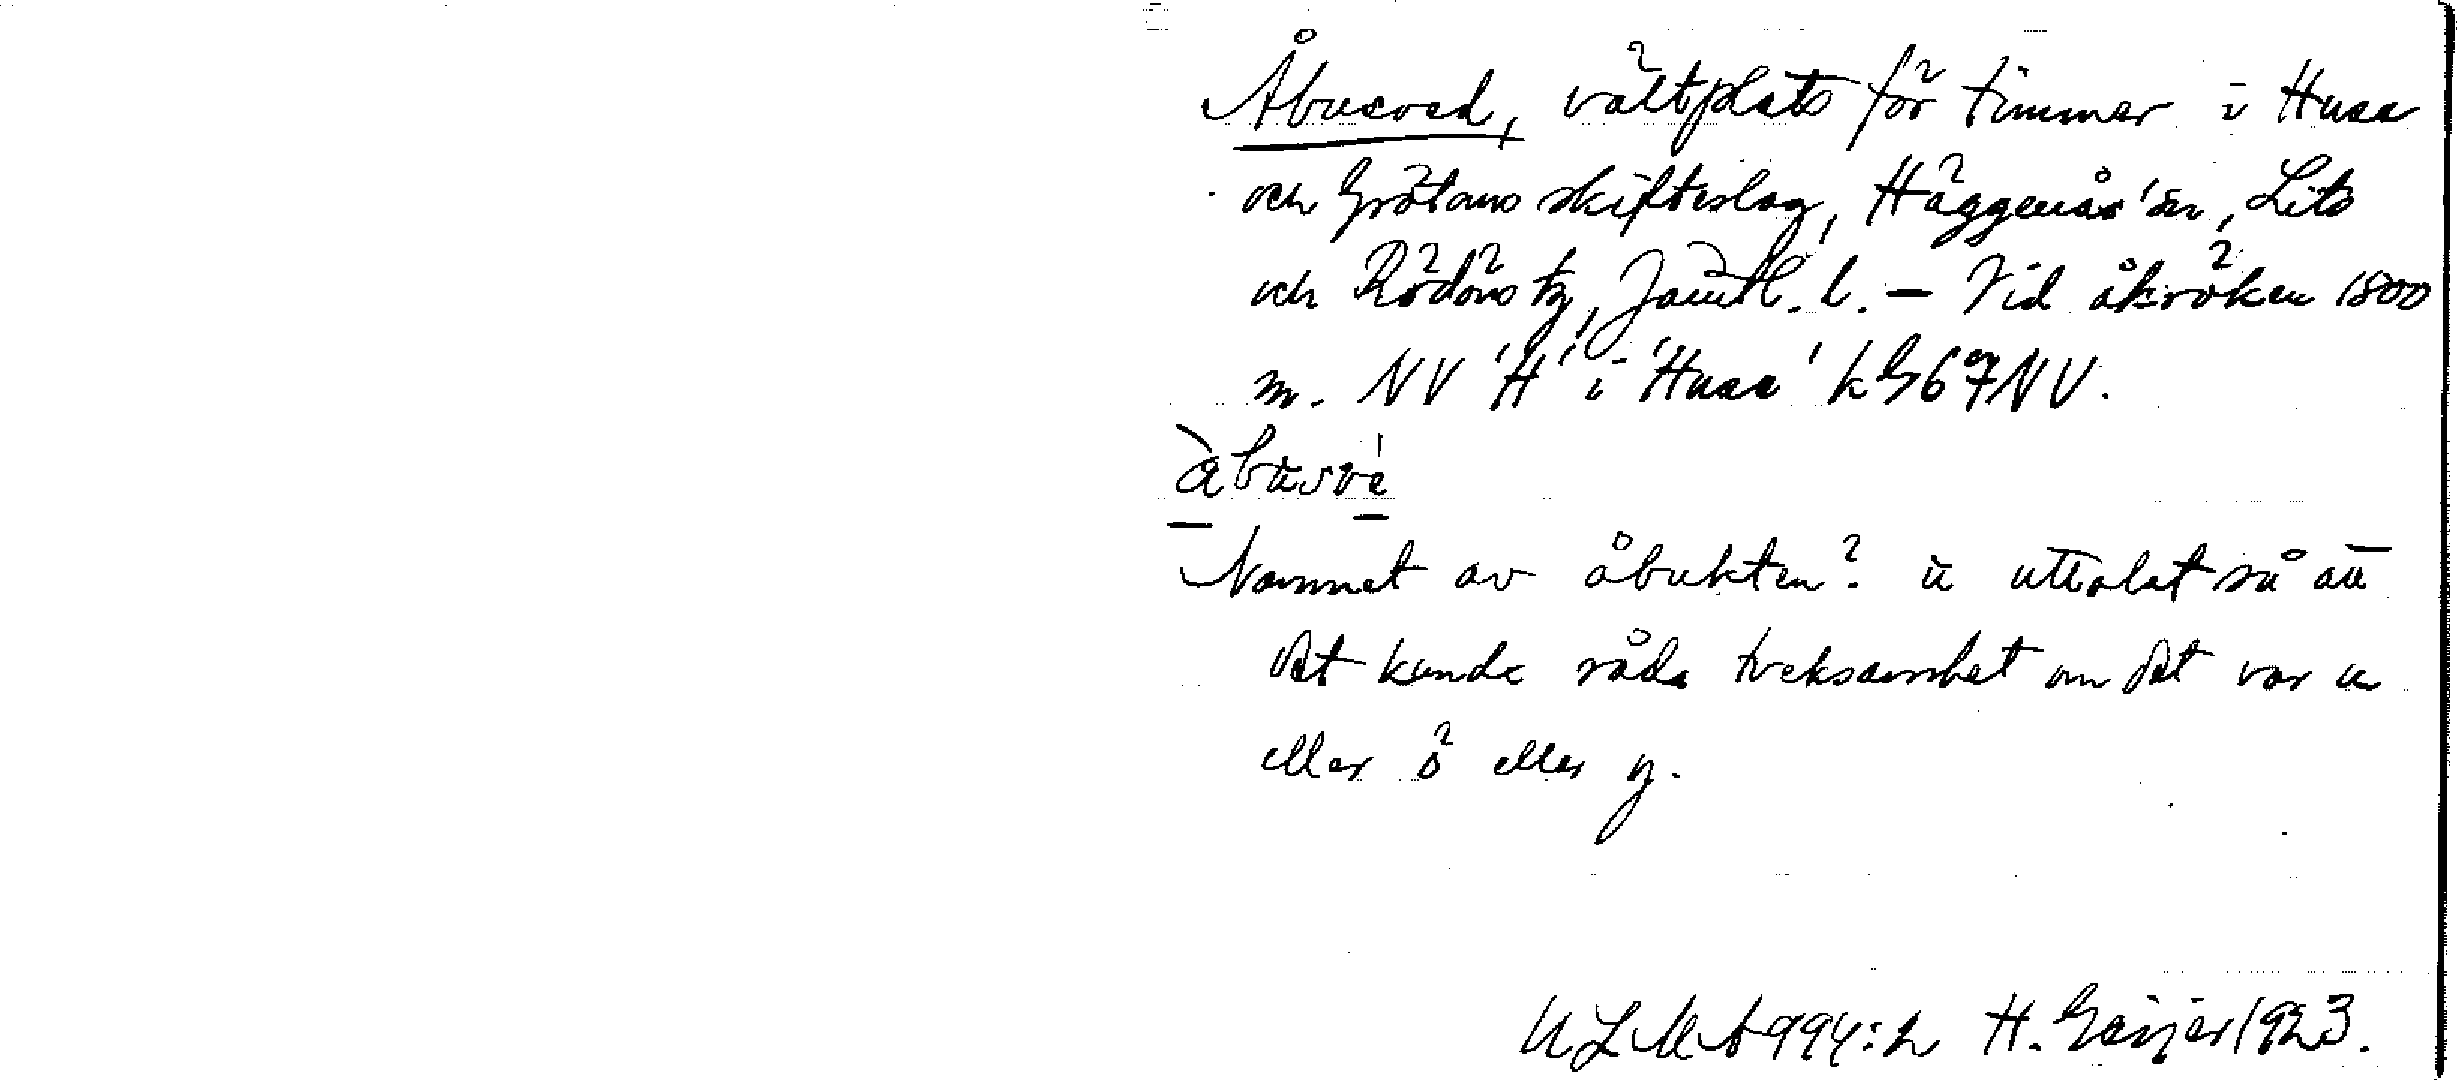 Åbusved, vältplats för timmer i Husa
och Grötoms skifteslag, Häggenås sn, Lits
och Rödöns tg, Jämtl. l. – Vid åkröken 1800
m. NV 'H' i 'Husa' kG67NV.
àbusvé
Namnet av åbukten? u uttalat så att
det kunde råda tveksamhet om det var u
eller ö eller y.
ULMA 994:2 H. Geijer 1923.